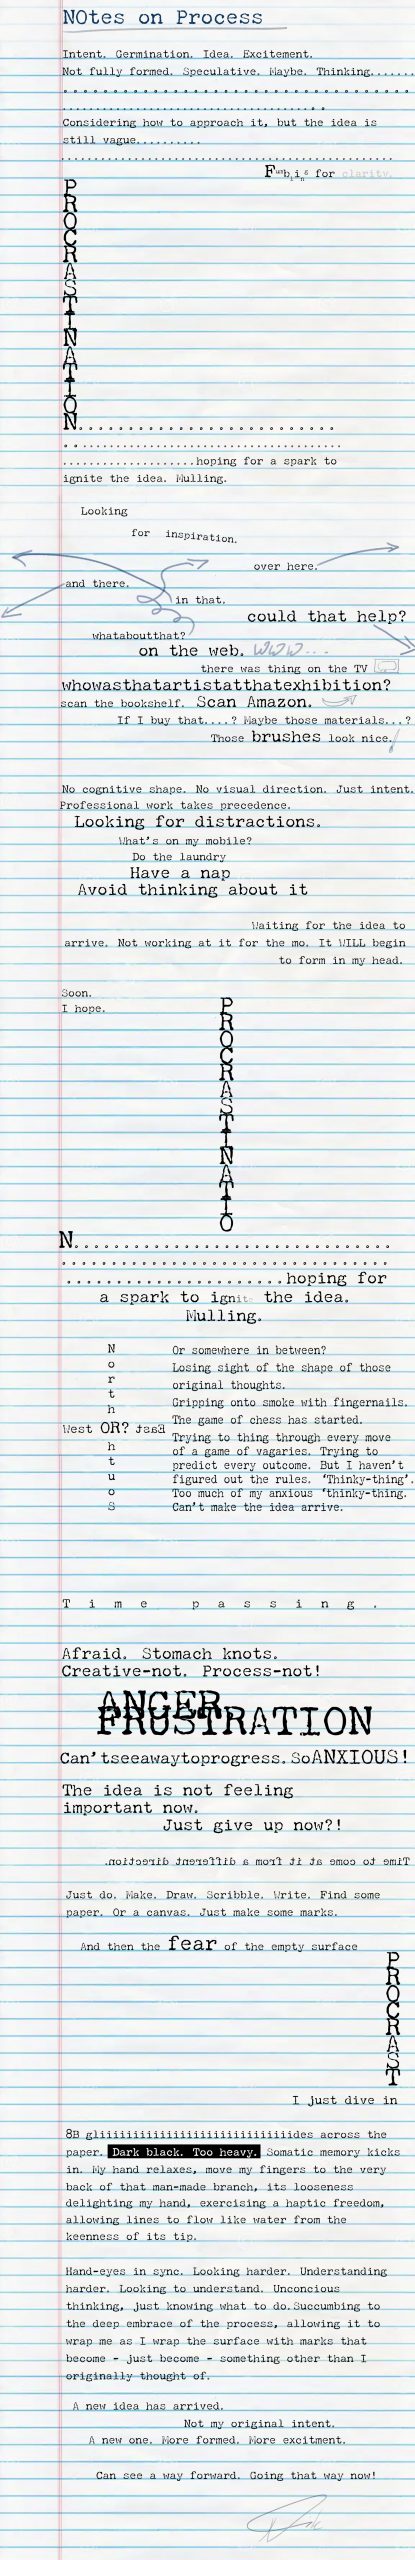 NOtes on Process
Intent. Germination. Idea. Excitement.
Not fully formed. Speculative. Maybe. Thinking.......
....................................
....................................
Considering how to approach it, but the idea is
still vague..........
....................................
Fumbling for clarity.
P
R
O
C
R
A
S
T
I
N
A
T
I
O
N..........................
....................................
....................hoping for a spark to
ignite the idea. Mulling.
Looking
for inspiration.
over here.
and there.
in that.
could that help?
whataboutthat?
on the web. WWW...
there was thing on the TV
whowasthatartistatthatexhibition?
scan the bookshelf. Scan Amazon.
If I buy that....? Maybe those materials...?
Those brushes look nice.
No cognitive shape. No visual direction. Just intent.
Professional work takes precedence.
Looking for distractions.
What's on my mobile?
Do the laundry
Have a nap
Avoid thinking about it
Waiting for the idea to
arrive. Not working at it for the mo. It WILL begin
to form in my head.
Soon.
I hope.
P
R
O
C
R
A
S
T
I
N
A
T
I
O
N................................
....................................
......................hoping for
a spark to ignite the idea.
Mulling.
N
o
r
t
h
West OR? East
h
t
u
o
S
Or somewhere in between?
Losing sight of the shape of those
original thoughts.
Gripping onto smoke with fingernails.
The game of chess has started.
Trying to thing through every move
of a game of vagaries. Trying to
predict every outcome. But I haven't
figured out the rules. 'Thinky-thing'.
Too much of my anxious 'thinky-thing.
Can't make the idea arrive.
T i m e p a s s i n g .
Afraid. Stomach knots.
Creative-not. Process-not!
ANGER.
FRUSTRATION
Can'tseeawaytoprogress.SoANXIOUS!
The idea is not feeling
important now.
Just give up now?!
Time to come at it from a different direction.
Just do. Make. Draw. Scribble. Write. Find some
paper. Or a canvas. Just make some marks.
And then the fear of the empty surface
P
R
O
C
R
A
S
T
I just dive in
8B gliiiiiiiiiiiiiiiiiiiiiiiiiiiiides across the
paper. Dark black. Too heavy. Somatic memory kicks
in. My hand relaxes, move my fingers to the very
back of that man-made branch, its looseness
delighting my hand, exercising a haptic freedom,
allowing lines to flow like water from the
keenness of its tip.
Hand-eyes in sync. Looking harder. Understanding
harder. Looking to understand. Unconcious
thinking, just knowing what to do.Succumbing to
the deep embrace of the process, allowing it to
wrap me as I wrap the surface with marks that
become - just become - something other than I
originally thought of.
A new idea has arrived.
Not my original intent.
A new one. More formed. More excitment.
Can see a way forward. Going that way now!